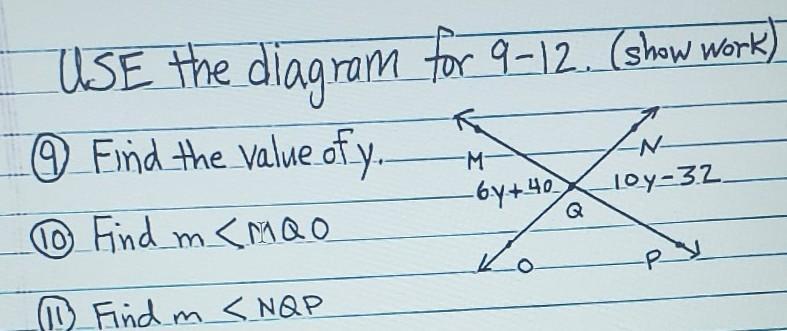 USE the diagram for 9-12. (show work)
⑨ Find the value of y.
M
N
6y+40
10y-32
Q
⑩ Find m <MQO
O
P
⑪ Find m <NQP